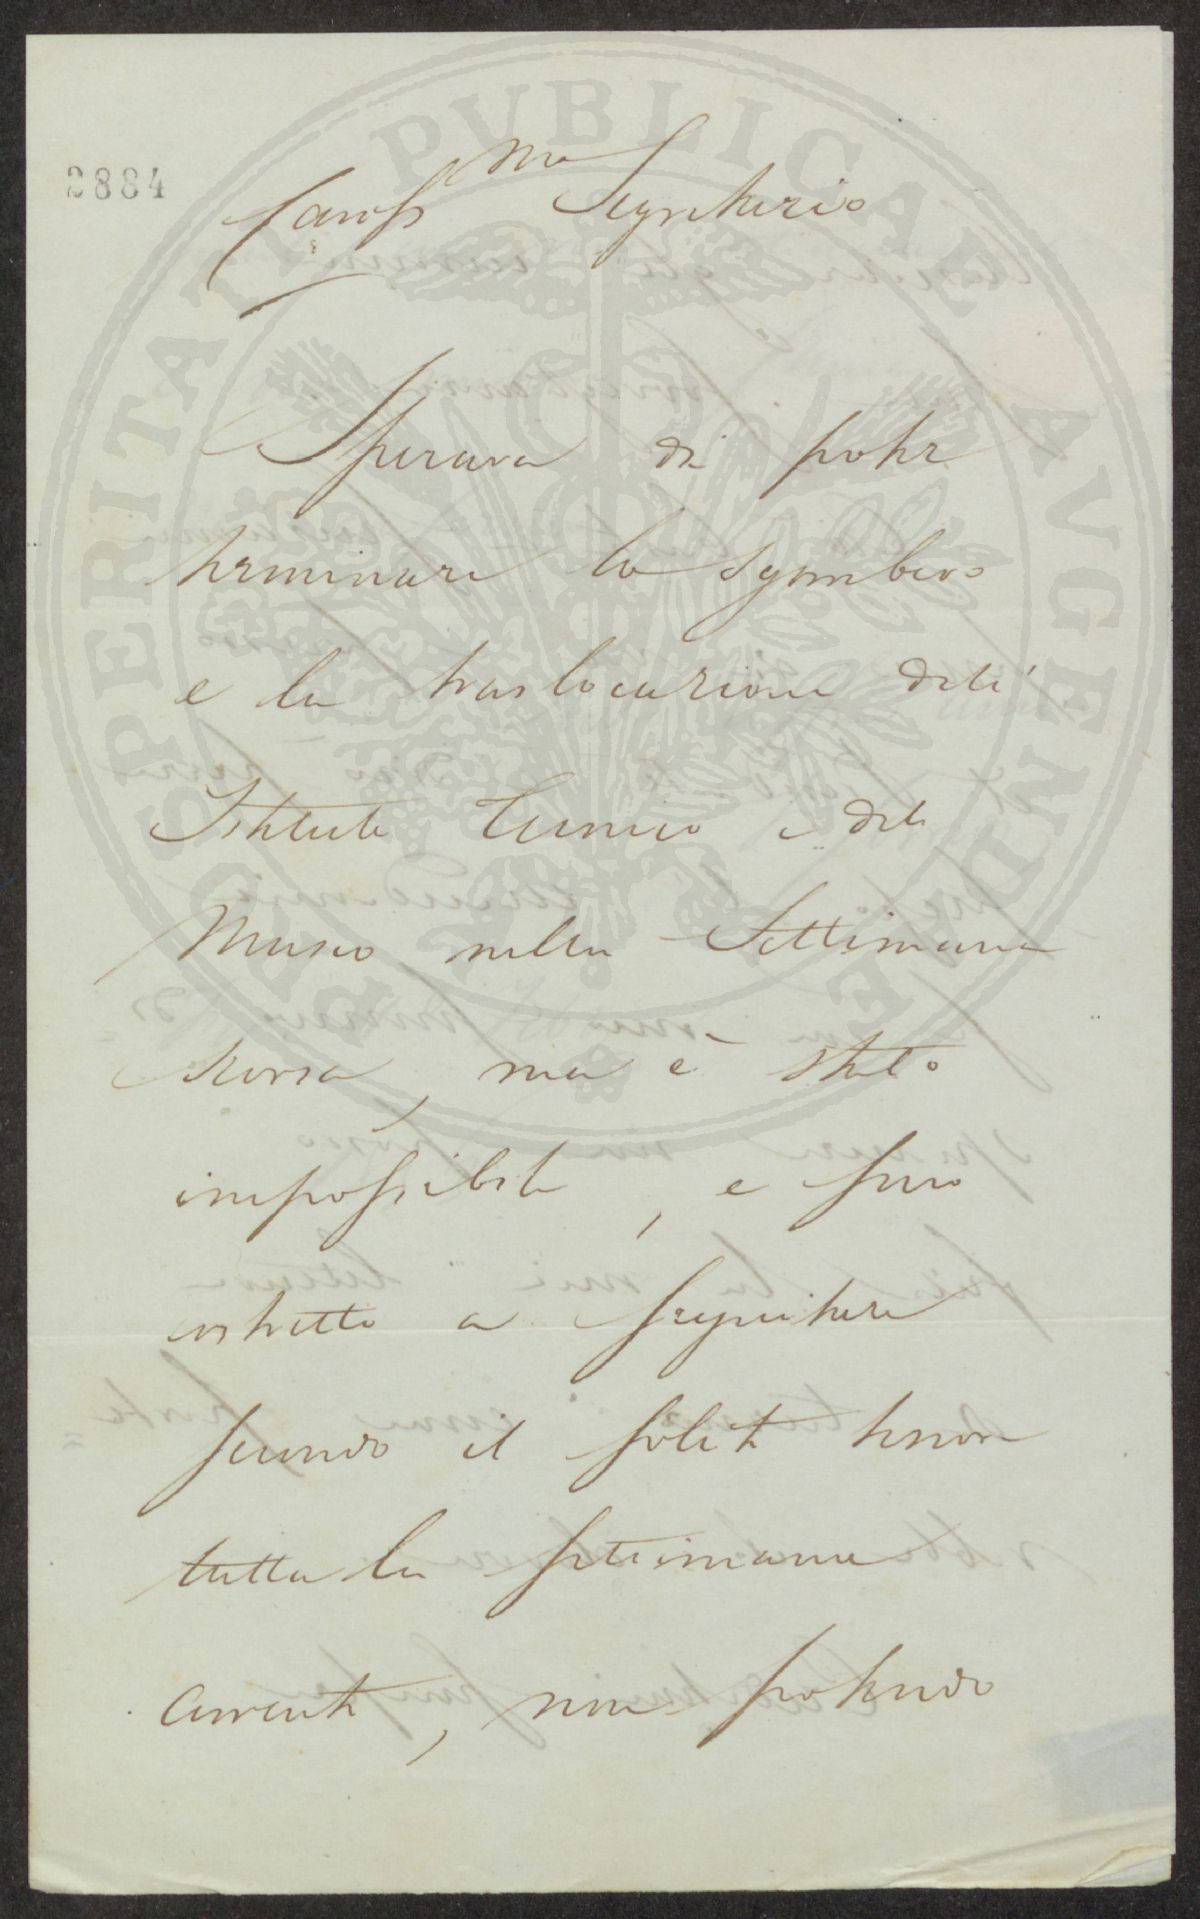 PROSPERITATI PUBLICAE AUGENDAE
2884
Cariss.mo Segretario
Sperava di poter
terminare lo sgombero
e la traslocazione dell'
Istituto Tecnico e del
Museo nella Settimana
scorsa, ma è stato
impossibile, e sono
costretto a seguitare
secondo il solito tenore
tutta la settimana
corrente, non potendo